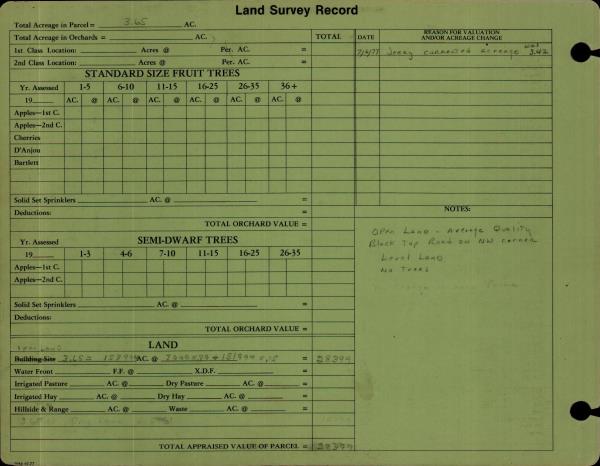 Land Survey Record
Total Acreage in Parcel = 3.65 AC.
Total Acreage in Orchards = AC. TOTAL DATE REASON FOR VALUATION AND/OR ACREAGE CHANGE
1st Class Location: Acres @ Per. AC. = 7/6/77 Jerry corrected acreage was 3.42
2nd Class Location: Acres @ Per. AC. =
STANDARD SIZE FRUIT TREES
Yr. Assessed 1-5 6-10 11-15 16-25 26-35 36+
19 AC. @ AC. @ AC. @ AC. @ AC. @ AC. @
Apples—1st C.
Apples—2nd C.
Cherries
D'Anjou
Bartlett
Solid Set Sprinklers AC. @ =
Deductions: =
TOTAL ORCHARD VALUE =
NOTES:
Open Land - Average Quality
Black Top Road on NW corner
Level Land
No Trees
Yr. Assessed SEMI-DWARF TREES
19 1-3 4-6 7-10 11-15 16-25 26-35
Apples—1st C.
Apples—2nd C.
Solid Set Sprinklers AC. @ =
Deductions:
TOTAL ORCHARD VALUE =
LAND
Building Site 3.65 = AC. @ = 28394
Water Front F.F. @ X.D.F. =
Irrigated Pasture AC. @ Dry Pasture AC. @ =
Irrigated Hay AC. @ Dry Hay AC. @ =
Hillside & Range AC. @ Waste AC. @ =
TOTAL APPRAISED VALUE OF PARCEL = 28394